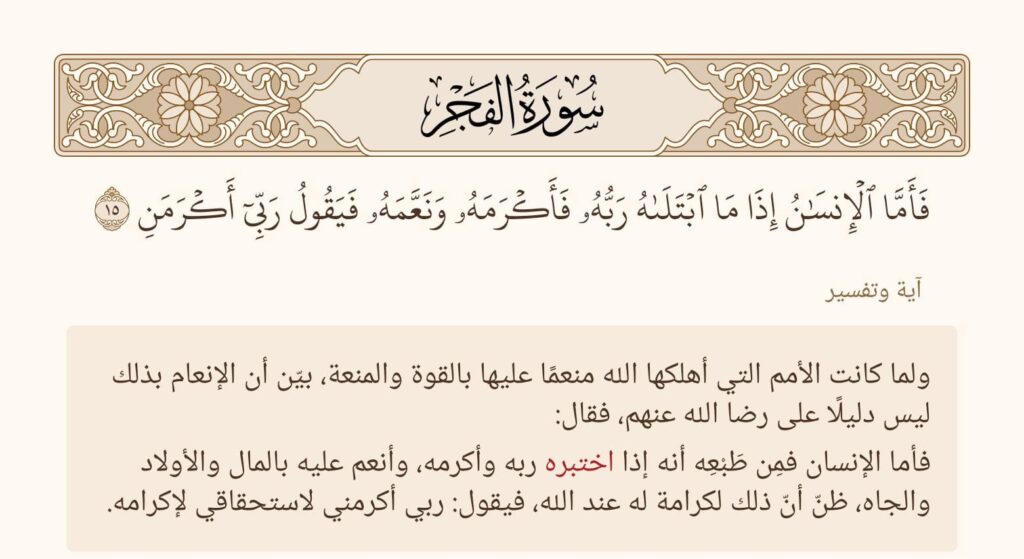 سُورَةُ الفَجْرِ
فَأَمَّا ٱلْإِنسَـٰنُ إِذَا مَا ٱبْتَلَىٰهُ رَبُّهُۥ فَأَكْرَمَهُۥ وَنَعَّمَهُۥ فَيَقُولُ رَبِّىٓ أَكْرَمَنِ ١٥
آية وتفسير
ولما كانت الأمم التي أهلكها الله منعمًا عليها بالقوة والمنعة، بيّن أن الإنعام بذلك
ليس دليلًا على رضا الله عنهم، فقال:
فأما الإنسان فمِن طَبْعِه أنه إذا اختبره ربه وأكرمه، وأنعم عليه بالمال والأولاد
والجاه، ظنّ أنّ ذلك لكرامة له عند الله، فيقول: ربي أكرمني لاستحقاقي لإكرامه.